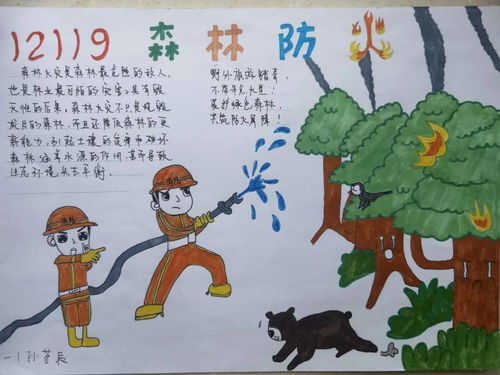 12119 森林防火
森林火灾是森林最危险的敌人,
也是林业最可怕的灾害,具有毁
灭性的后果。森林火灾不只是烧毁
成片的森林,而且还降低森林的更
新能力,引起土壤的贫瘠和破坏
森林涵养水源的作用,甚至导致
生态环境失去平衡。
野外旅游踏青,
不存半点火星!
爱护绿色森林,
共筑防火屏障!
消防
消防
一1孙